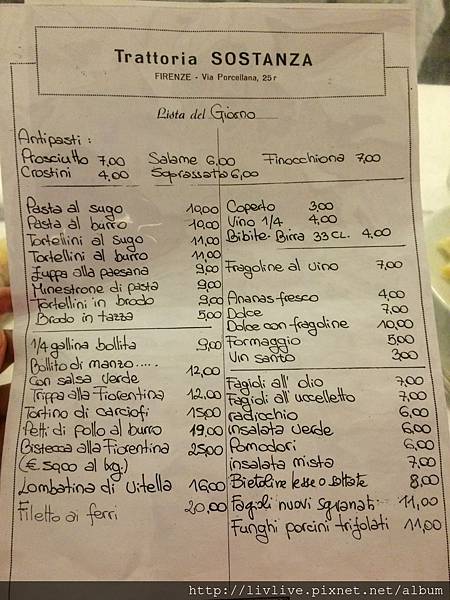 Trattoria SOSTANZA
FIRENZE - Via Porcellana, 25 r
Lista del Giorno
Antipasti :
Prosciutto 7,00 Salame 6,00 Finocchiona 7,00
Crostini 4,00 Soprassata 6,00
Pasta al sugo 10,00
Pasta al burro 10,00
Tortellini al sugo 11,00
Tortellini al burro 11,00
Zuppa alla paesana 9,00
Minestrone di pasta 9,00
Tortellini in brodo 9,00
Brodo in tazza 5,00
1/4 gallina bollita 9,00
Bollito di manzo.....
Con salsa verde 12,00
Trippa alla Fiorentina 12,00
Tortino di carciofi 15,00
Petti di pollo al burro 19,00
Bistecca alla Fiorentina 25,00
(€ 50,00 al kg.)
Lombatina di vitella 16,00
Filetto ai ferri 20,00
Coperto 3,00
Vino 1/4 4,00
Bibite- Birra 33 CL. 4,00
Fragoline al vino 7,00
Ananas fresco 4,00
Dolce 7,00
Dolce con fragoline 10,00
Formaggio 5,00
Vin santo 3,00
Fagioli all' olio 7,00
Fagioli all' uccelletto 7,00
radicchio 6,00
insalata verde 6,00
Pomodori 6,00
insalata mista 7,00
Bietoline lesse o saltate 8,00
Fagioli nuovi sgranati 11,00
Funghi porcini trifolati 11,00
http://livlive.pixnet.net/album